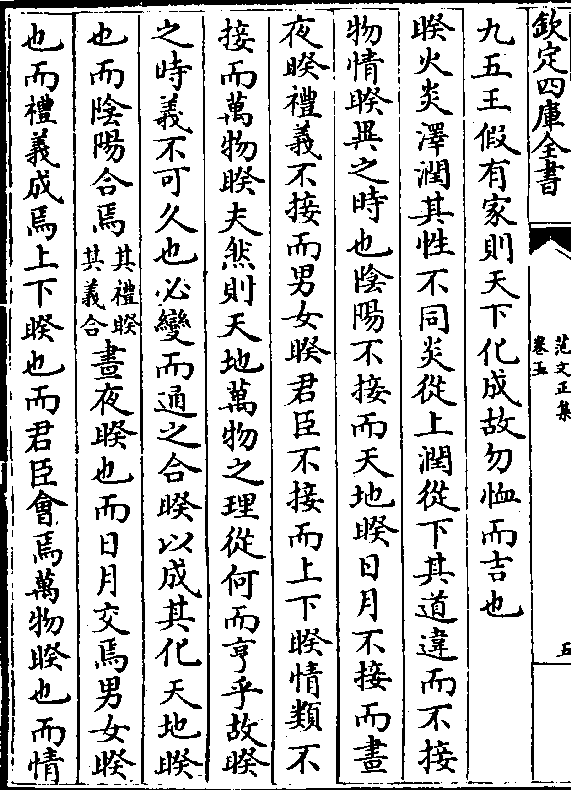 欽定四庫全書
范文正集
卷五
五
九五王假有家則天下化成故勿恤而吉也
睽火炎澤潤其性不同炎從上潤從下其道違而不接
物情睽異之時也陰陽不接而天地睽日月不接而晝
夜睽禮義不接而男女睽君臣不接而上下睽情類不
接而萬物睽夫然則天地萬物之理從何而亨乎故睽
之時義不可久也必變而通之合睽以成其化天地睽
也而陰陽合焉其禮睽其義合晝夜睽也而日月交焉男女睽
也而禮義成焉上下睽也而君臣會焉萬物睽也而情